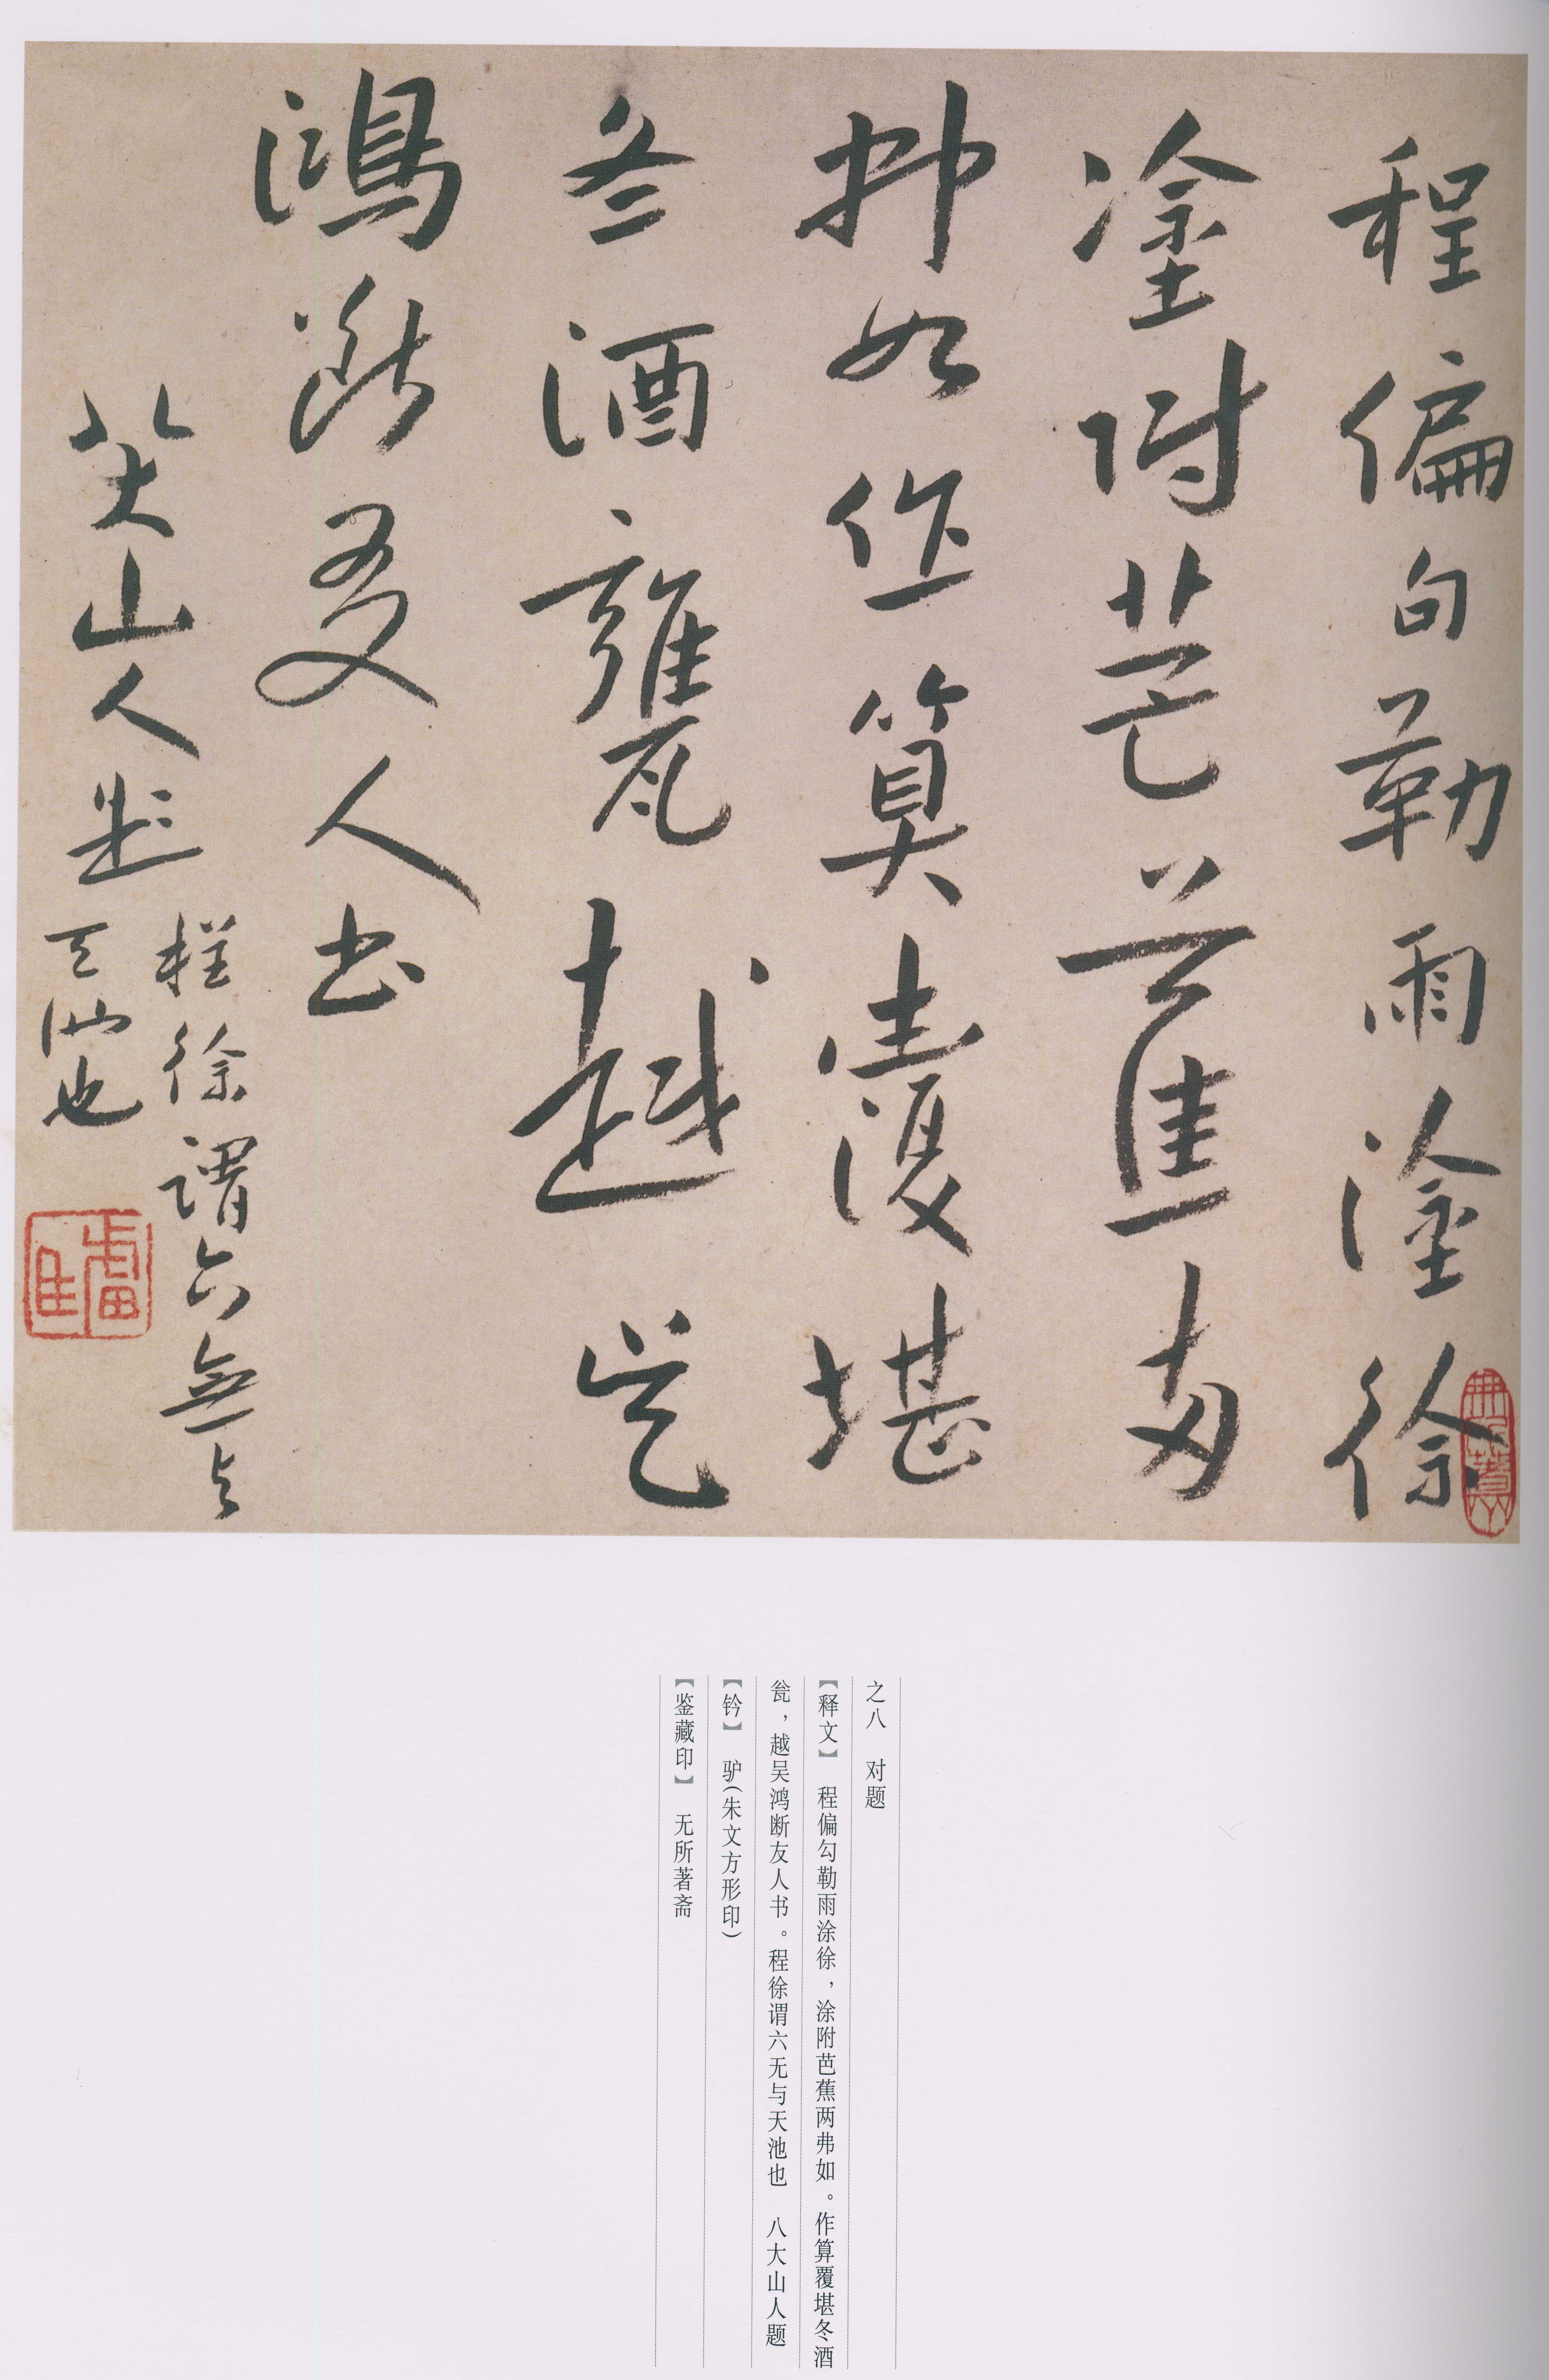 程偏句勒雨塗徐
塗附芭蕉两
弗如作算覆堪
冬酒甕越吴
鴻斷友人书
程徐谓六無与
天池也
八大山人题
之八 对题
【释文】 程偏勾勒雨涂徐，涂附芭蕉两弗如。作算覆堪冬酒
瓮，越吴鸿断友人书。程徐谓六无与天池也 八大山人题
【钤】 驴（朱文方形印）
【鉴藏印】 无所著斋